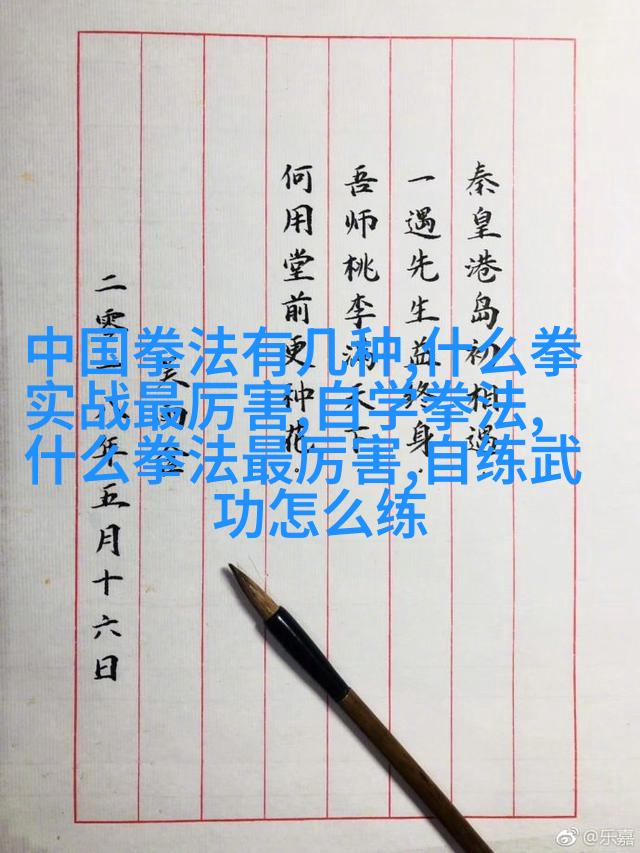 秦皇港岛初相遇
一遇先生益终身.
吾师桃李满天下
何用堂前更种花.
二零一年五月十六日
中国拳法有几种,什么拳
实战最厉害,自学拳法,
什么拳法最厉害,自练武
功怎么练
@乐嘉